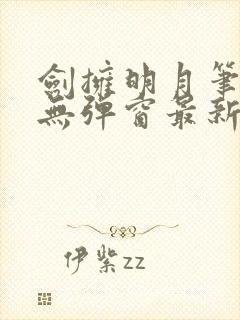 劍擁明月筆
無彈窗最新
伊紫zz